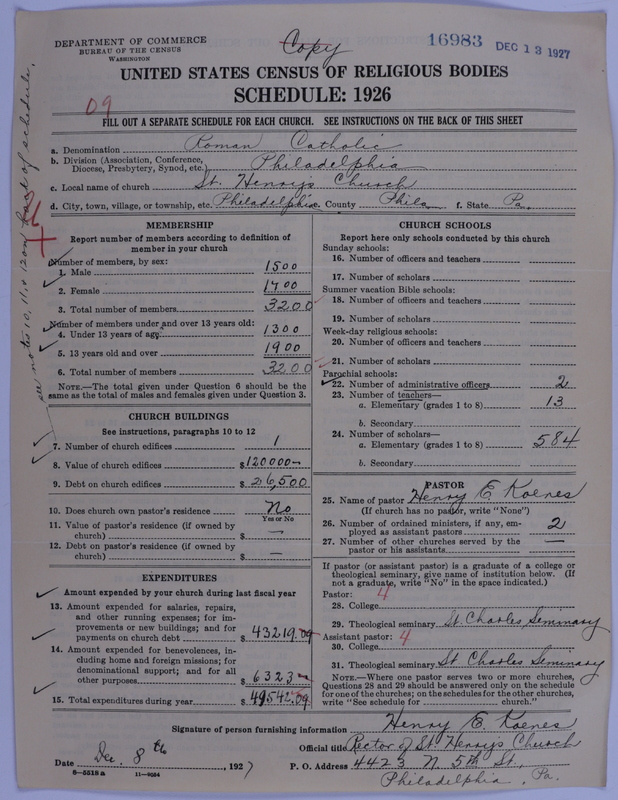 DEPARTMENT OF COMMERCE
BUREAU OF THE CENSUS
WASHINGTON
Copy
16983
DEC 13 1927
UNITED STATES CENSUS OF RELIGIOUS BODIES
SCHEDULE: 1926
09
FILL OUT A SEPARATE SCHEDULE FOR EACH CHURCH. SEE INSTRUCTIONS ON THE BACK OF THIS SHEET
a. Denomination Roman Catholic
b. Division (Association, Conference, Diocese, Presbytery, Synod, etc.) Philadelphia
c. Local name of church St. Henry's Church
d. City, town, village, or township, etc. Philadelphia e. County Phila f. State Pa.
see notes 10, 11, & 12 on back of schedule.
MEMBERSHIP
Report number of members according to definition of
member in your church
Number of members, by sex:
1. Male 1500
2. Female 1700
3. Total number of members 3200
Number of members under and over 13 years old:
4. Under 13 years of age 1300
5. 13 years old and over 1900
6. Total number of members 3200
NOTE.—The total given under Question 6 should be the
same as the total of males and females given under Question 3.
CHURCH BUILDINGS
See instructions, paragraphs 10 to 12
7. Number of church edifices 1
8. Value of church edifices $120000
9. Debt on church edifices $26,500
10. Does church own pastor's residence No
Yes or No
11. Value of pastor's residence (if owned by
church) $ —
12. Debt on pastor's residence (if owned by
church) $ —
EXPENDITURES
Amount expended by your church during last fiscal year
13. Amount expended for salaries, repairs,
and other running expenses; for im-
provements or new buildings; and for
payments on church debt $43219.09
14. Amount expended for benevolences, in-
cluding home and foreign missions; for
denominational support; and for all
other purposes $6323
15. Total expenditures during year $49542.09
CHURCH SCHOOLS
Report here only schools conducted by this church
Sunday schools:
16. Number of officers and teachers
17. Number of scholars
Summer vacation Bible schools:
18. Number of officers and teachers
19. Number of scholars
Week-day religious schools:
20. Number of officers and teachers
21. Number of scholars
Parochial schools:
22. Number of administrative officers 2
23. Number of teachers—
a. Elementary (grades 1 to 8) 13
b. Secondary
24. Number of scholars—
a. Elementary (grades 1 to 8) 584
b. Secondary
PASTOR
25. Name of pastor Henry E Koenes
(If church has no pastor, write "None")
26. Number of ordained ministers, if any, em-
ployed as assistant pastors 2
27. Number of other churches served by the
pastor or his assistants —
If pastor (or assistant pastor) is a graduate of a college or
theological seminary, give name of institution below. (If
not a graduate, write "No" in the space indicated.)
Pastor: 4
28. College
29. Theological seminary St Charles Seminary
Assistant pastor: 4
30. College
31. Theological seminary St Charles Seminary
NOTE.—Where one pastor serves two or more churches,
Questions 28 and 29 should be answered only on the schedule
for one of the churches; on the schedules for the other churches,
write "See schedule for church."
Signature of person furnishing information Henry E. Koenes
Official title Rector of St Henry's Church
Date Dec. 8th, 1927 P. O. Address 4423 N. 5th St.,
Philadelphia, Pa.
8—5518 a 11—9054